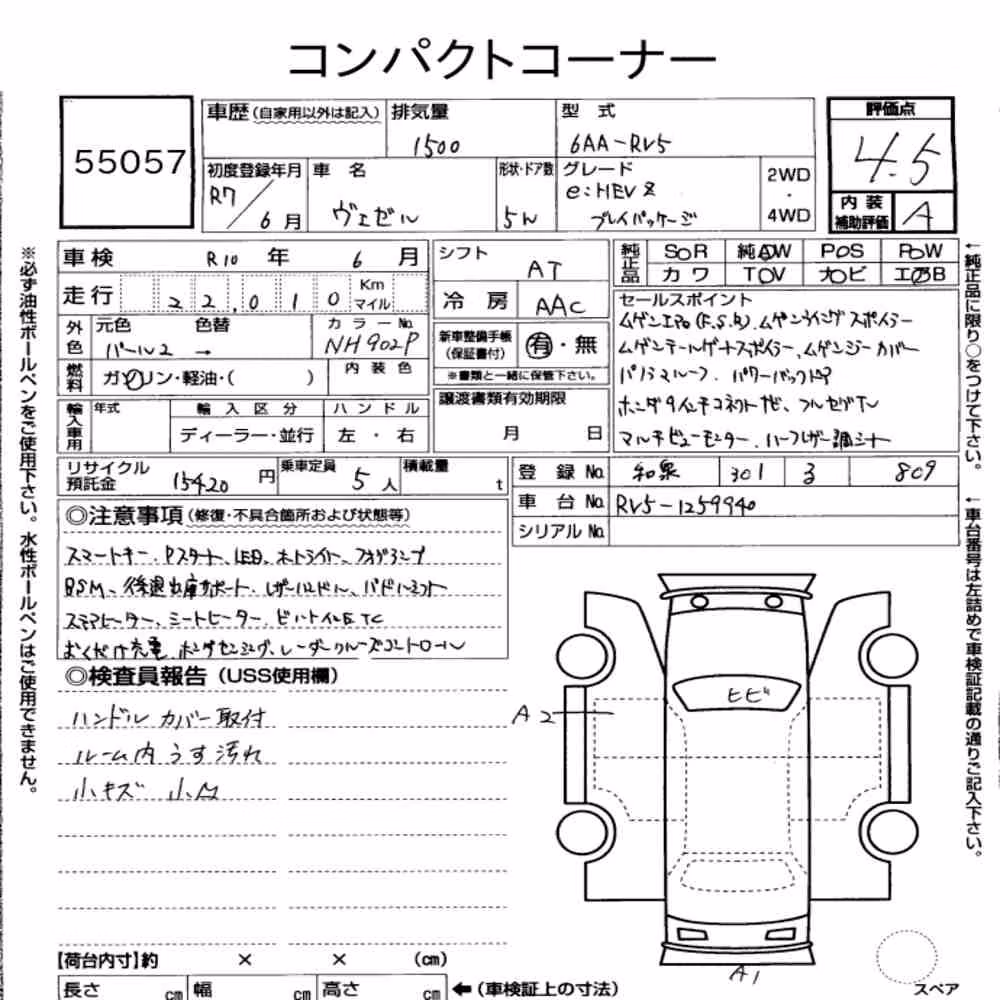 コンパクトコーナー
55057
車歴(自家用以外は記入)
排気量 1500
型式 6AA-RV5
評価点 4.5
内装補助評価 A
初度登録年月 R7/6月
車名 ヴェゼル
形状・ドア数 5h
グレード e:HEV Z
プレイパッケージ
2WD・4WD
車検 R10年 6月
走行 22,010 Km マイル
外色 元色 色替 パール2 →
カラーNo. NH902P
燃料 ガソリン・軽油・( )
内装色
輸入車用 年式 輸入区分 ハンドル
ディーラー・並行 左・右
シフト AT
冷房 AAC
新車整備手帳(保証書付) 有・無
※書類と一緒に保管下さい。
譲渡書類有効期限
月 日
純正品 SOR 純AW POS POW
カワ TOV ナビ エアB
セールスポイント
ムゲンエアロ(F.S.R)、ムゲンウイングスポイラー
ムゲンテールゲートスポイラー、ムゲンジーカバー
パノラマルーフ、パワーバックドア
ホンダ9インチコネクトナビ、フルセグTV
マルチビューモニター、ハーフレザー調シート
リサイクル預託金 15420円
乗車定員 5人
積載量 t
登録No. 和泉 301 る 809
車台No. RV5-1259940
シリアルNo.
◎注意事項(修復・不具合箇所および状態等)
スマートキー、Pスタート、LEB、オートライト、フォグランプ
BSM、後退出庫サポート、レザーハンドル、パドルシフト
ステアヒーター、シートヒーター、ビルトインETC
おくだけ充電、ホンダセンシング、レーダークルーズコントロール
◎検査員報告(USS使用欄)
ハンドルカバー取付
ルーム内うす汚れ
小キズ 小A
ヒビ
A2
A1
【荷台内寸】約 × × (cm)
長さ cm 幅 cm 高さ cm
←(車検証上の寸法)
スペア
※必ず油性ボールペンをご使用下さい。水性ボールペンはご使用できません。
←純正品に限り○をつけて下さい。
←車台番号は左詰めで車検証記載の通りご記入下さい。